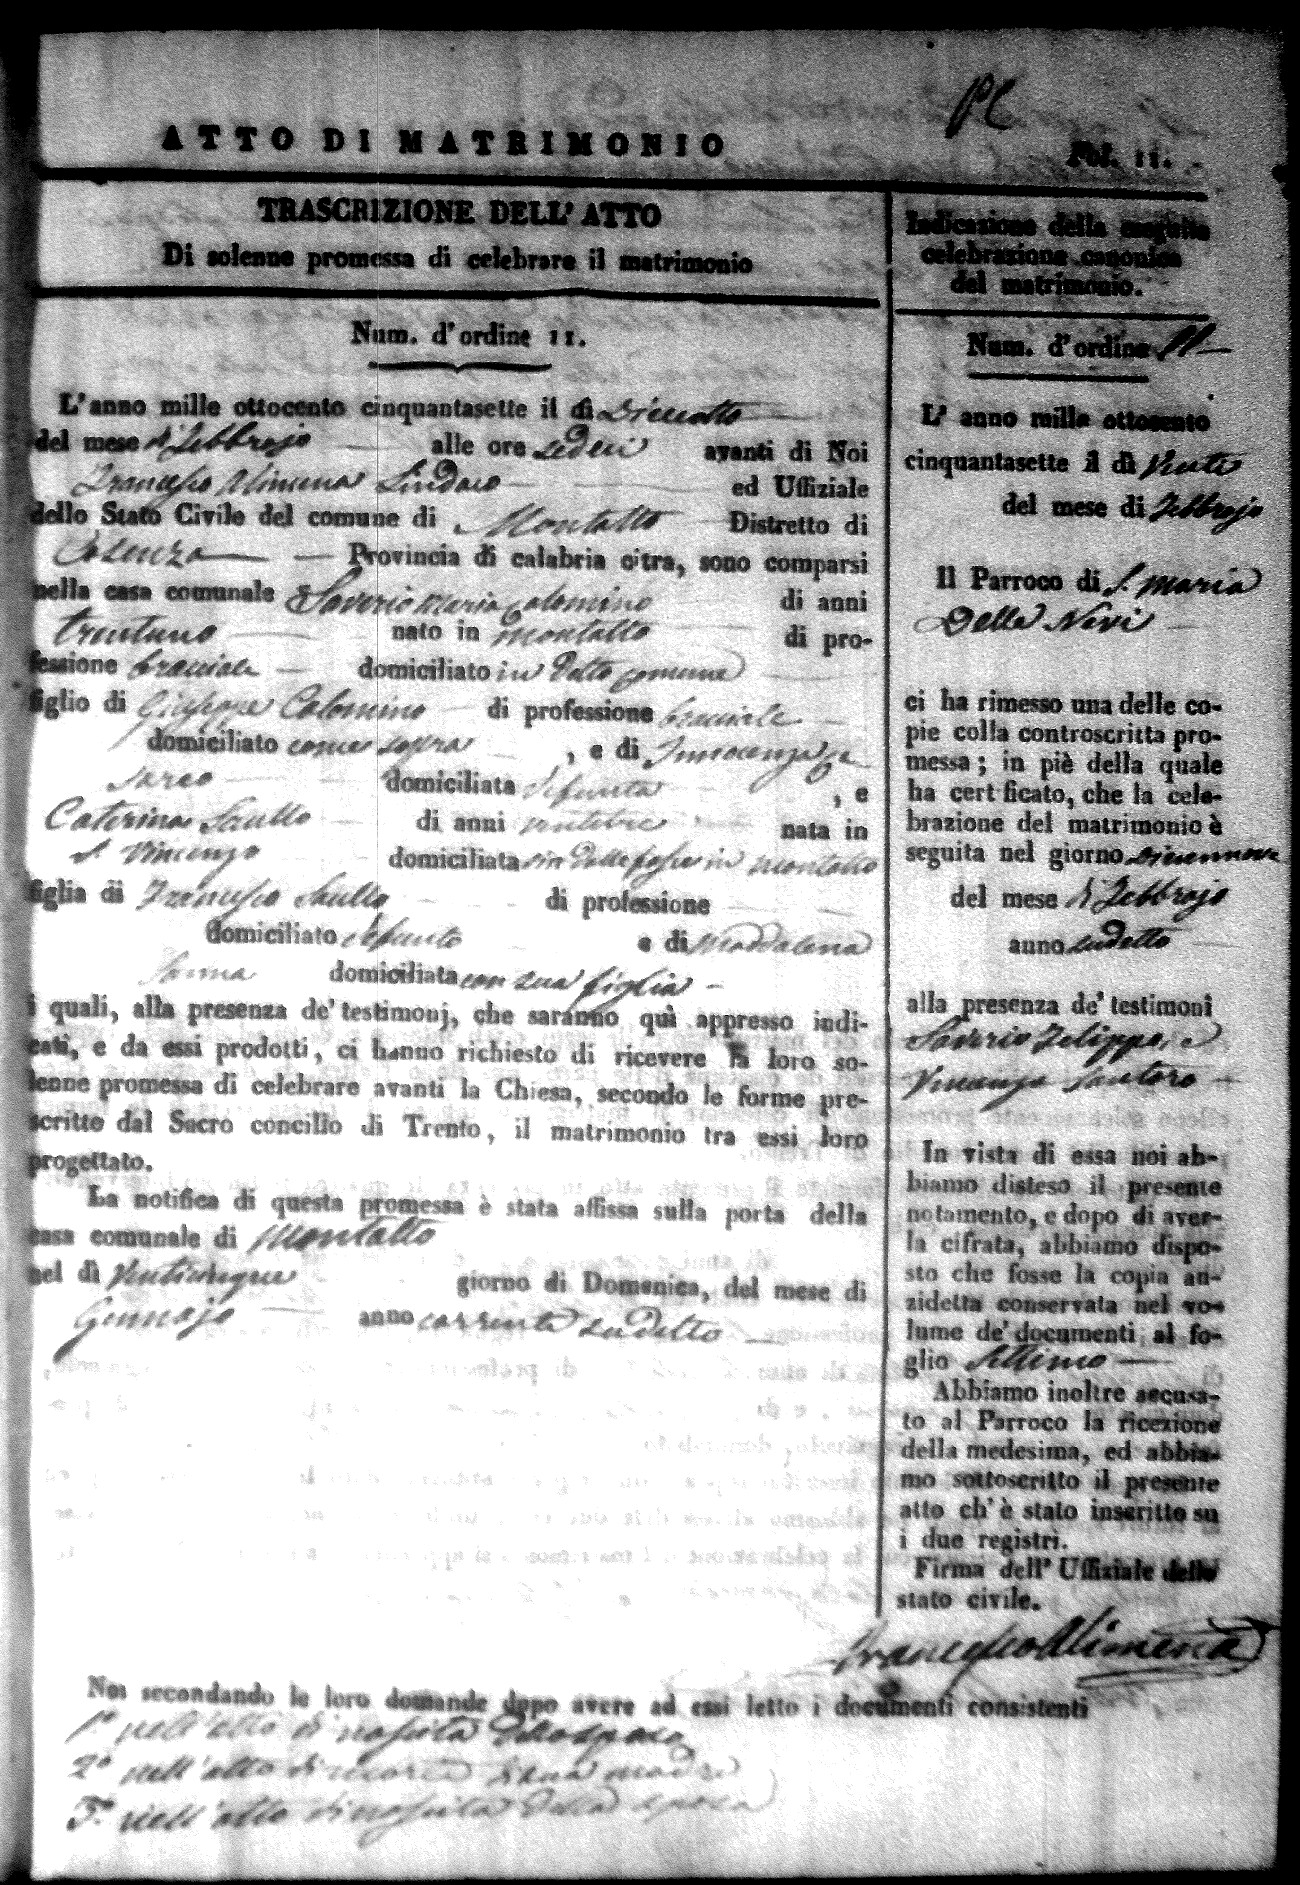 PC
ATTO DI MATRIMONIO
Fol. 11.
TRASCRIZIONE DELL' ATTO
Di solenne promessa di celebrare il matrimonio
Num. d' ordine 11.
L' anno mille ottocento cinquantasette il di Diciotto
del mese di Febbrajo alle ore sedeci avanti di Noi
Francesco Alimena Sindaco ed Uffiziale
dello Stato Civile del comune di Montalto Distretto di
Cosenza Provincia di calabria citra, sono comparsi
nella casa comunale Saverio Maria Colomino di anni
trentuno nato in Montalto di pro-
fessione bracciale domiciliato in detto comune
figlio di Giuseppe Colomino di professione bracciale
domiciliato come sopra , e di Innocenza
domiciliata defunta , e
Caterina Scullo di anni ventitre nata in
S. Vincenzo domiciliata in Montalto
figlia di Francesco Scullo di professione
domiciliato defunto e di Maddalena
domiciliata con sua figlia
i quali, alla presenza de' testimonj, che saranno quì appresso indi-
cati, e da essi prodotti, ci hanno richiesto di ricevere la loro so-
lenne promessa di celebrare avanti la Chiesa, secondo le forme pre-
scritto dal Sacro concilio di Trento, il matrimonio tra essi loro
progettato.
La notifica di questa promessa è stata affissa sulla porta della
casa comunale di Montalto
nel dì Venticinque giorno di Domenica, del mese di
Gennajo anno corrente sudetto
Indicazione della seguita
celebrazione canonica
del matrimonio.
Num. d' ordine 11
L' anno mille ottocento
cinquantasette il dì Venti
del mese di Febbrajo
Il Parroco di S. Maria
Della Nevi
ci ha rimesso una delle co-
pie colla controscritta pro-
messa; in piè della quale
ha certificato, che la cele-
brazione del matrimonio è
seguita nel giorno Diecennove
del mese di Febbrajo
anno sudetto
alla presenza de' testimoni
Saverio Filippo, e
Vincenzo Santoro
In vista di essa noi ab-
biamo disteso il presente
notamento, e dopo di aver-
la cifrata, abbiamo dispo-
sto che fosse la copia an-
zidetta conservata nel vo-
lume de' documenti al fo-
glio Settimo
Abbiamo inoltre accusa-
to al Parroco la ricezione
della medesima, ed abbia-
mo sottoscritto il presente
atto ch' è stato inscritto su
i due registri.
Firma dell' Uffiziale dello
stato civile.
Francesco Alimena
Noi secondando le loro domande dopo avere ad essi letto i documenti consistenti
1º nell' atto di nascita dello sposo
2º nell' atto di morte di sua madre
3º nell' atto di nascita della sposa